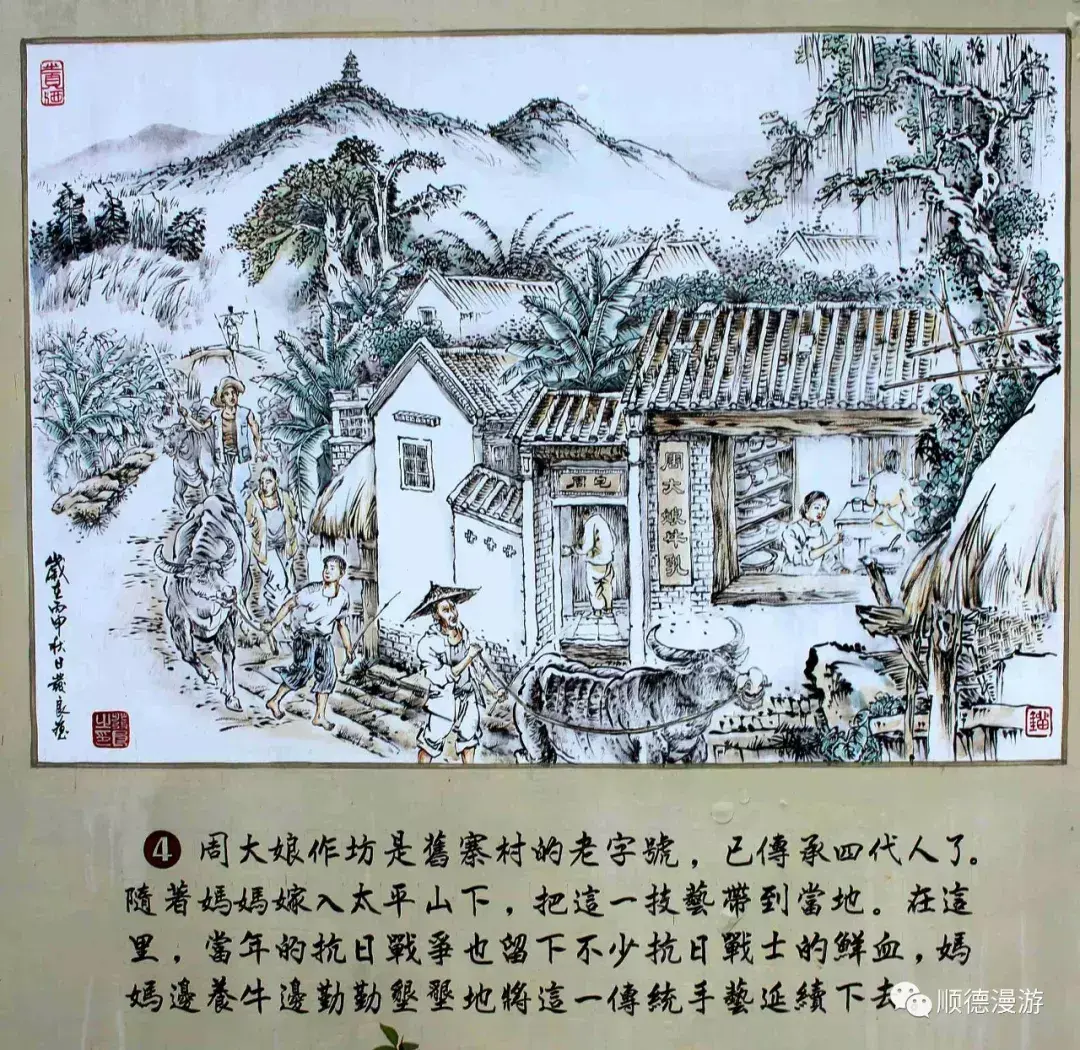 周宅
周大娘牛乳
丙申秋日
4 周大娘作坊是舊寨村的老字號，已傳承四代人了。
隨著媽媽嫁入太平山下，把這一技藝帶到當地。在這
里，當年的抗日戰爭也留下不少抗日戰士的鮮血，媽
媽邊養牛邊勤勤墾墾地將這一傳統手藝延續下去
顺德漫游